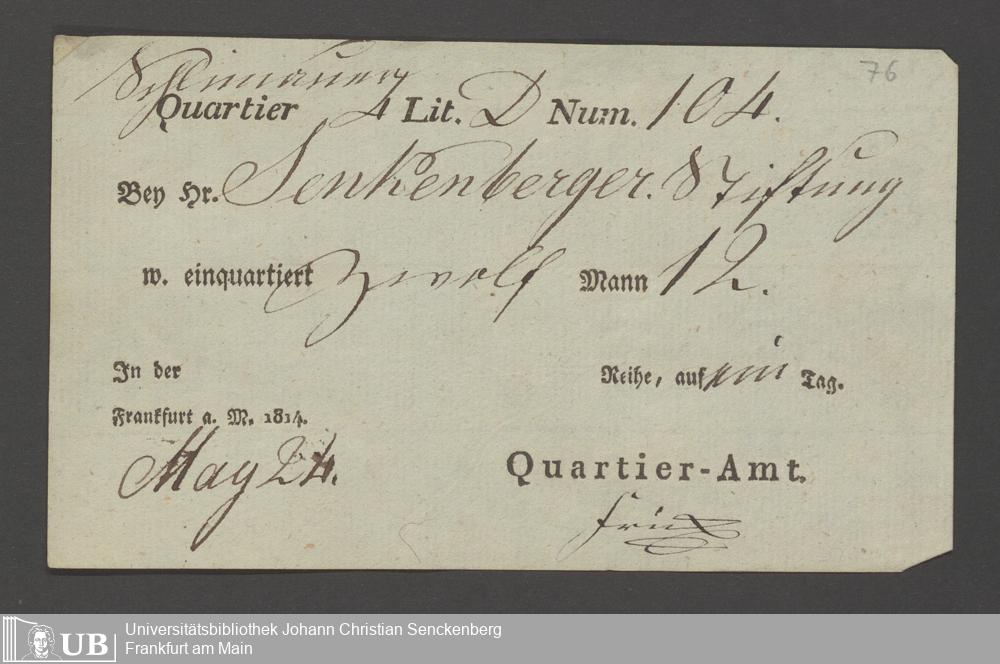 76
Quartier 4 Lit. D Num. 104.
Bey Hr. Senkenberger. Stiftung
w. einquartiert Zwolf Mann 12.
In der Reihe, auf ein Tag.
Frankfurt a. M. 1814.
May 24.
Quartier-Amt.
UB
Universitätsbibliothek Johann Christian Senckenberg
Frankfurt am Main